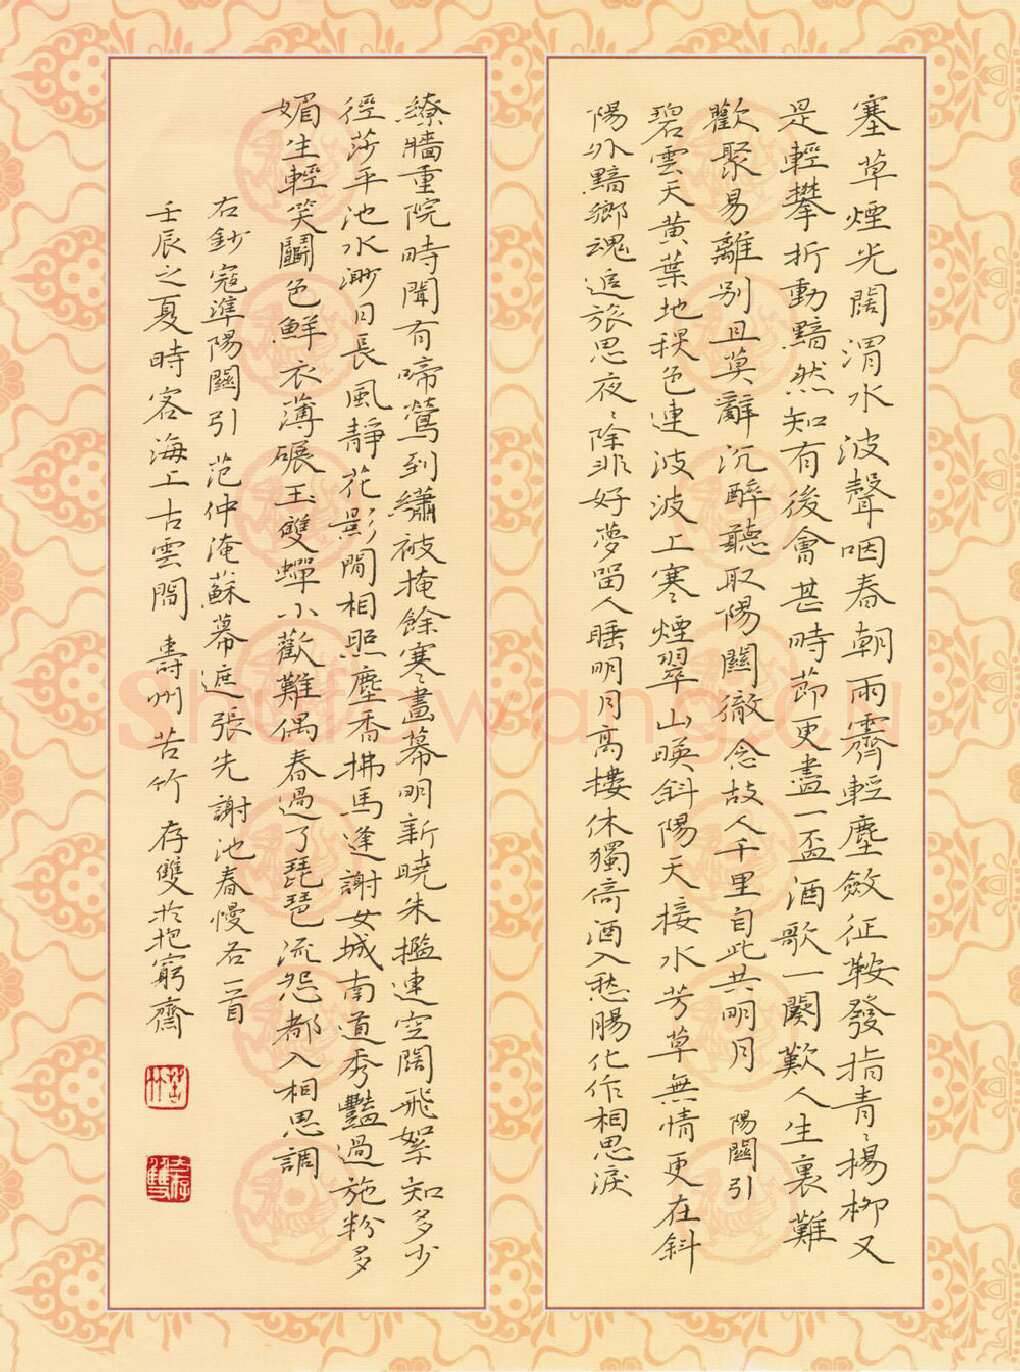 塞草煙光闊渭水波聲咽春朝雨霽輕塵斂征鞍發指青〻楊柳又
是輕攀折動黯然知有後會甚時節更盡一盃酒歌一闋歎人生裏難
歡聚易離別且莫辭沉醉聽取陽關徹念故人千里自此共明月 陽關引
碧雲天黃葉地秋色連波波上寒煙翠山映斜陽天接水芳草無情更在斜
陽外黯鄉魂追旅思夜〻除非好夢留人睡明月高樓休獨倚酒入愁腸化作相思淚
繚牆重院時聞有啼鶯到繡被掩餘寒畫幕明新曉朱檻連空闊飛絮知多少
徑莎平池水渺日長風靜花影閒相照塵香拂馬逢謝女城南道秀豔過施粉多
媚生輕笑鬬色鮮衣薄碾玉雙蟬小歡難偶春過了琵琶流怨都入相思調
右鈔寇準陽關引 范仲淹蘇幕遮張先謝池春慢各一首
壬辰之夏時客海上古雲閣 壽州苦竹 存雙於抱窮齋
苦竹
存雙